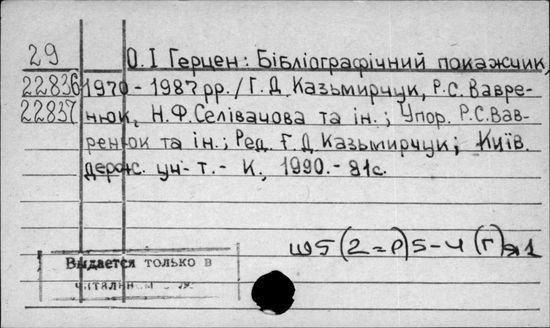 29 О.І Герцен: Бібліографічний покажчик,
22836 1970-1987 рр./Г.Д Казьмирчук, Р.С. Вавре-
22837 нюк, Н.Ф.Селівачова та ін.; Упор. Р.С.Вав-
ренюк та ін.; Ред. Г.Д Казьмирчук; Київ.
держ. ун-т.- К., 1990.- 81с.
Ш5(2=Р)5-4(Г)я1
Выдается только в